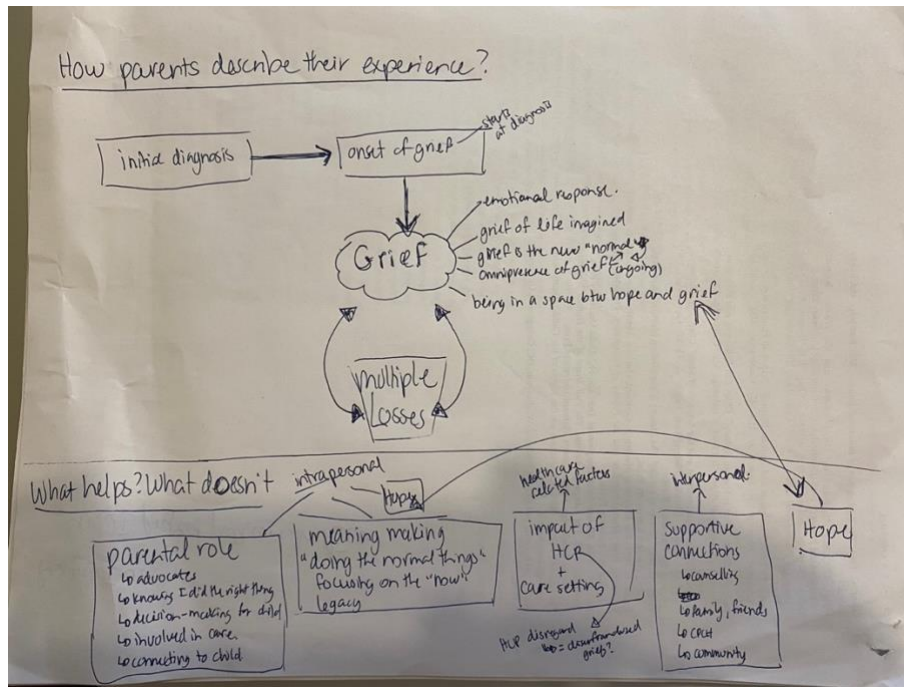 How parents describe their experience?
initial diagnosis
onset of grief
starts
at diagnosis
Grief
emotional response.
grief of life imagined
grief is the new "normal"
omnipresence of grief (ongoing)
being in a space btw hope and grief
multiple
Losses
What helps? What doesn't
intrapersonal
Hope
healthcare
related factors
interpersonal
parental role
↳ advocates
↳ knowing I did the right thing
↳ decision-making for child
↳ involved in care
↳ connecting to child
meaning making
"doing the normal things"
focusing on the "now"
legacy
impact of
HCP
+
care setting
HCP disregard
= disenfranchised
grief?
supportive
connections
↳ counselling
↳ family, friends
↳
↳ community
Hope